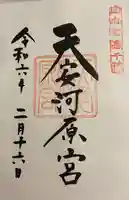 天安河原宮
令和六年
二月十六日